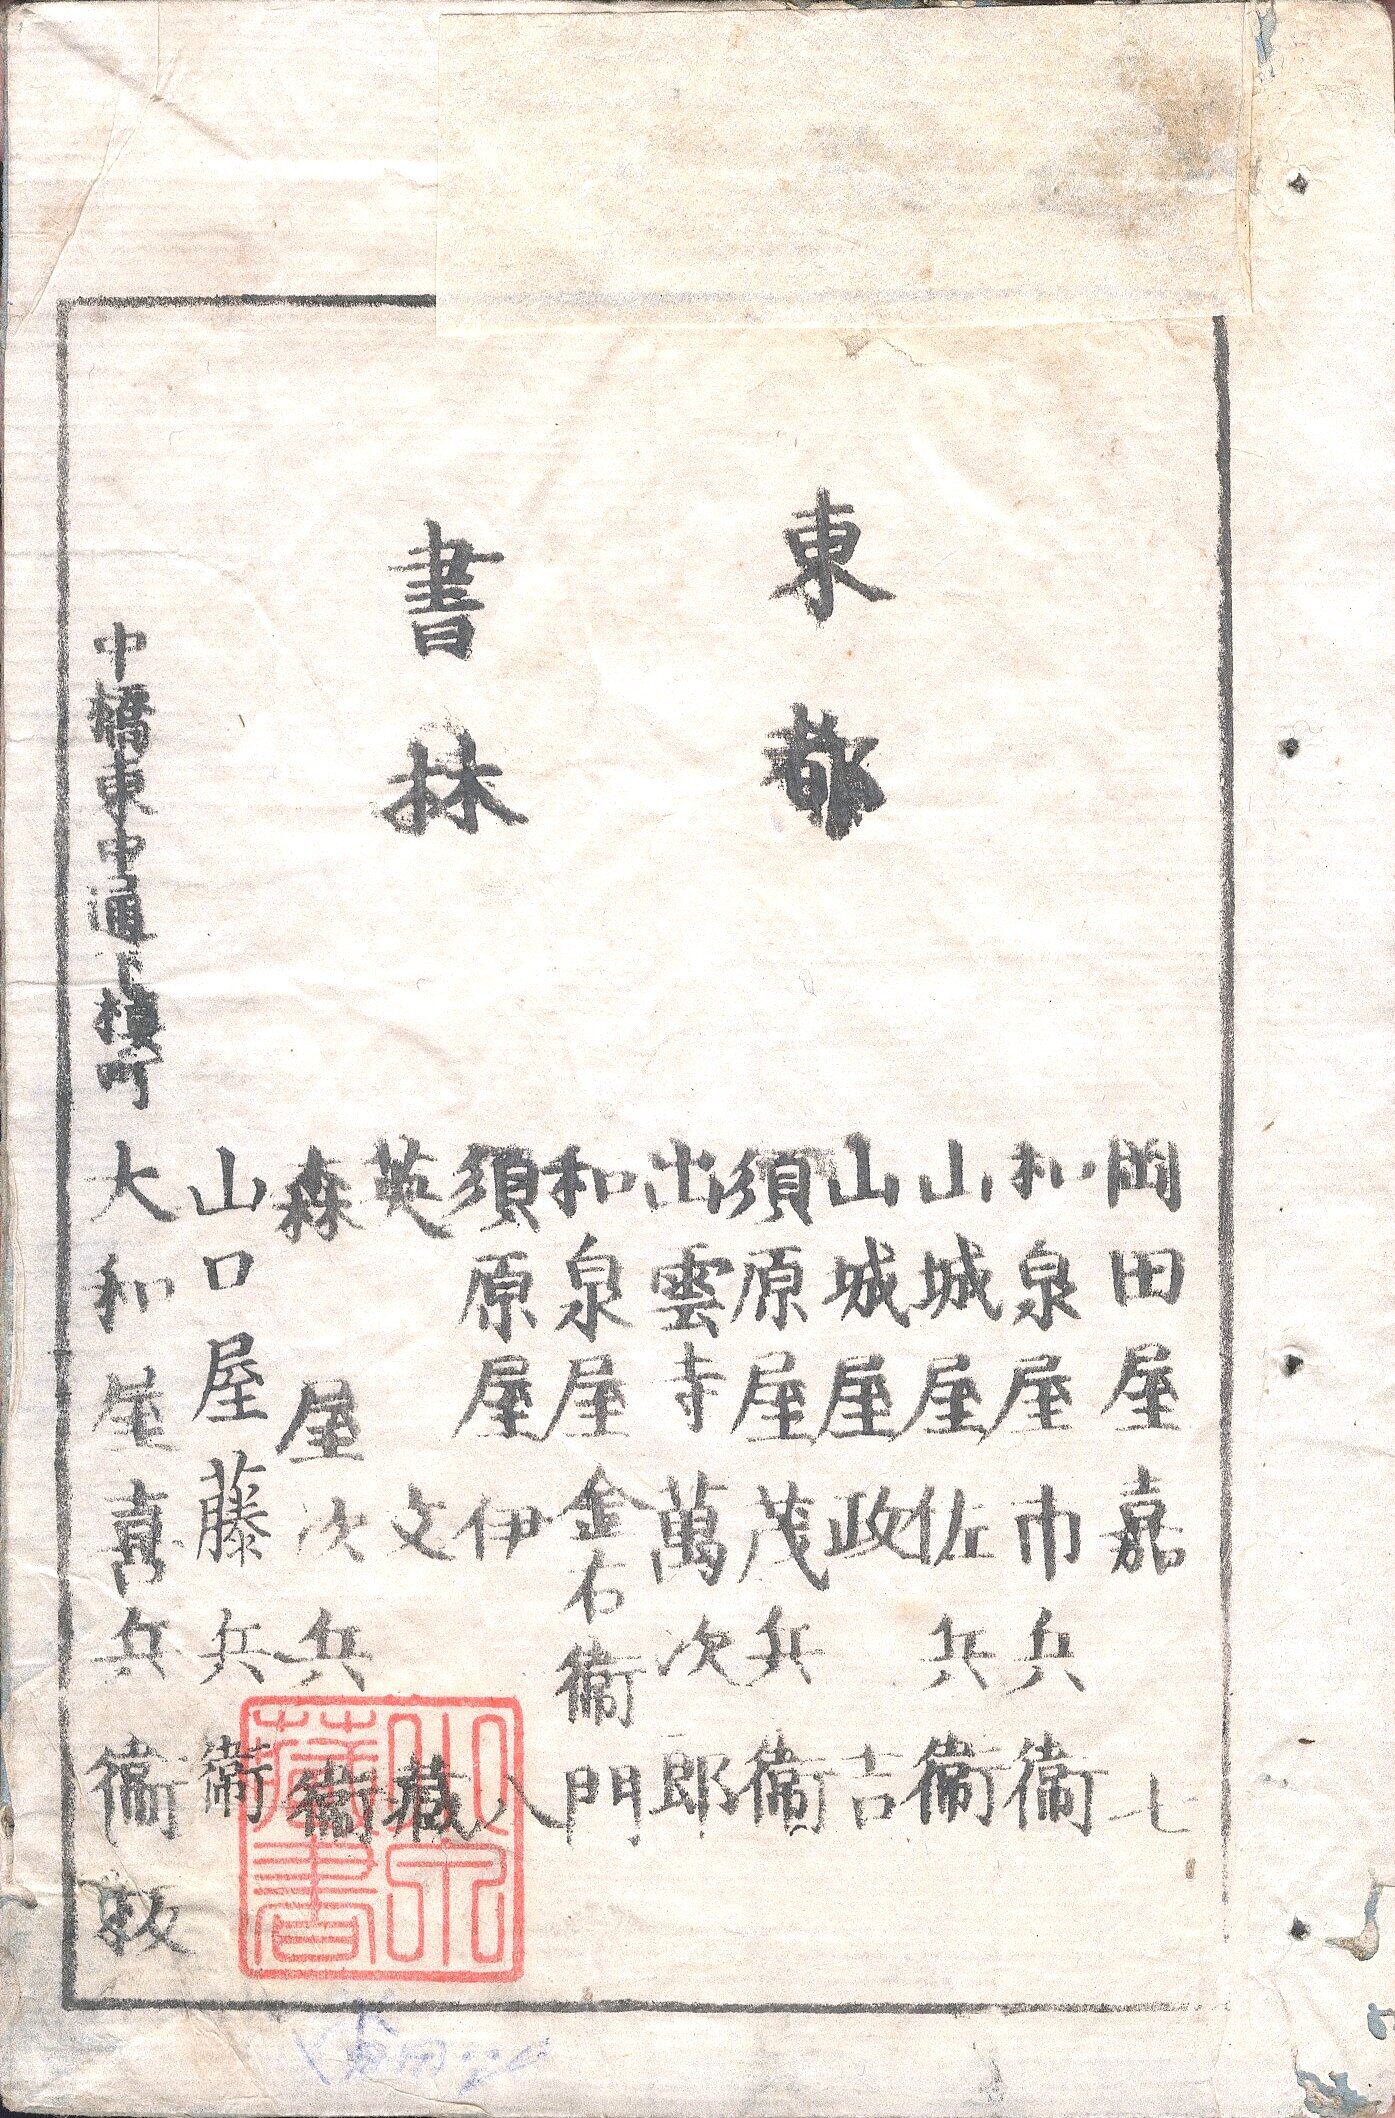 東都
書林
岡田屋嘉七
和泉屋市兵衞
山城屋佐兵衞
山城屋政吉
須原屋茂兵衞
出雲寺萬次郎
和泉屋金右衞門
須原屋伊八
英文藏
森屋次兵衞
山口屋藤兵衞
中橋東中通下槙町 大和屋喜兵衞板